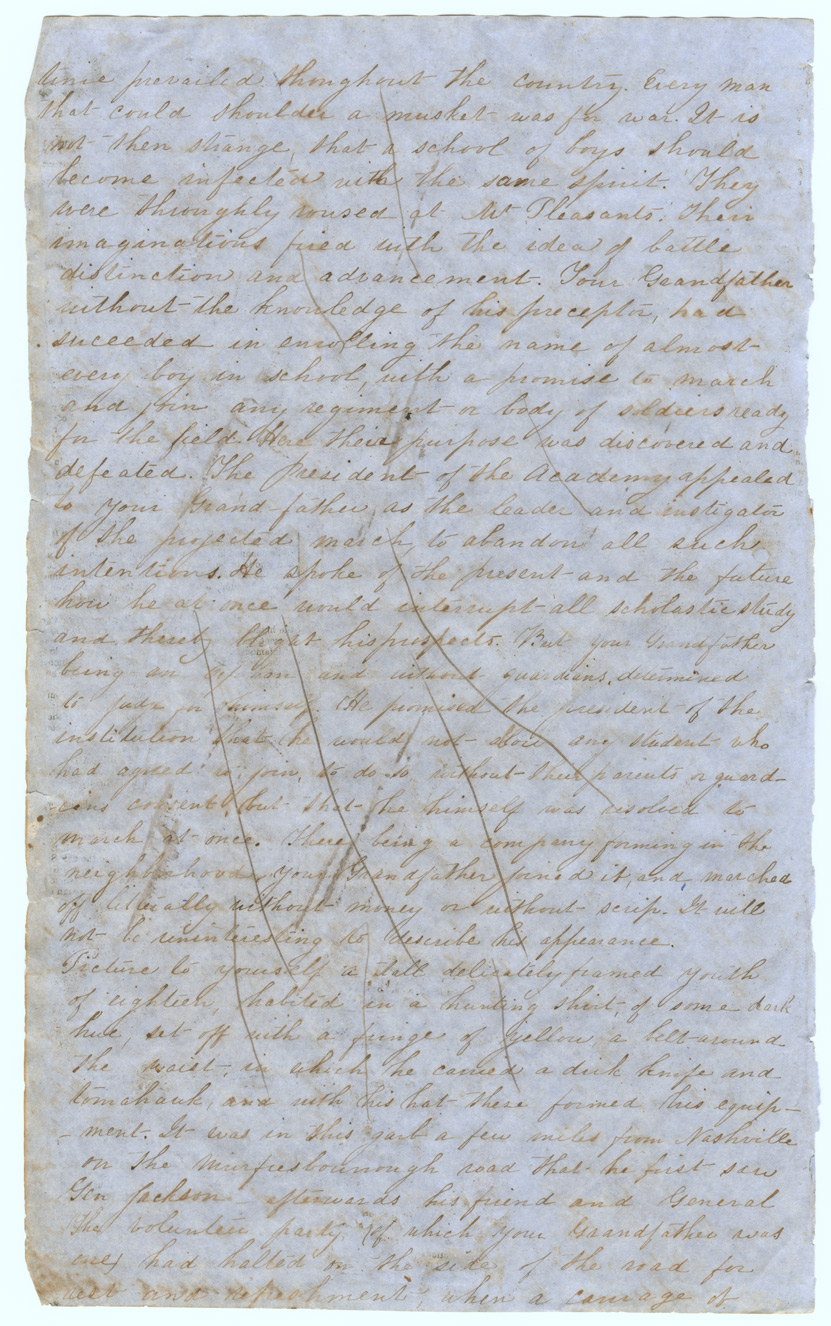 time prevailed thoughout the country. Every man
that could shoulder a musket was for war. It is
not then strange, that a school of boys should
become infected with the same spirit. They
were throughly roused at Mt Pleasants. Their
imaginations fired with the idea of battle
distinction and advancement. Your Grandfather
without the knowledge of his preceptor, had
succeeded in enrolling the name of almost
every boy in school, with a promise to march
and join any regiment or body of soldiers ready
for the field. Here their purpose was discovered and
defeated. The President of the Academy appealed
to your Grand-father, as the leader and instigator
of the projected march, to abandon all such
intentions. He spoke of the present and the future
how he at once would interrupt all scholastic study
and thereby his prospects. But your Grandfather
being an orphan and without guardians, determined
to judge for himself. He promised the president of the
institution that he would not any student who
had agreed to join, to do so without their parents or guard-
ians consent, but that he himself was resolved to
march at once. There being a company forming in the
neighborhood, your Grandfather joined it, and marched
off literally without money or without scrip. It will
not be uninteresting to describe his appearance.
Picture to yourself a tall delicately framed youth
of eighteen, habited in a hunting shirt, of some dark
hue, set off with a fringe of yellow, a belt around
the waist, in which he carried a dirk knife and
tomahawk, and with his hat these formed his equip-
- ment. It was in this garb a few miles from Nashville
on the Murfiesbourough road that he first saw
Gen Jackson - afterwards his friend and General
The volunteer party, (of which your Grandfather was
one) had halted on the side of the road for
rest and refreshment, when a carriage of